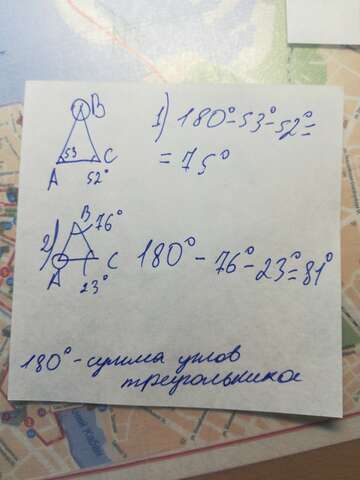 B
53
A
C
52°
1) 180°-53°-52°=
=75°
2)
B
76°
A
C
23°
180° - 76°-23°=81°
180° - сумма углов
треугольника